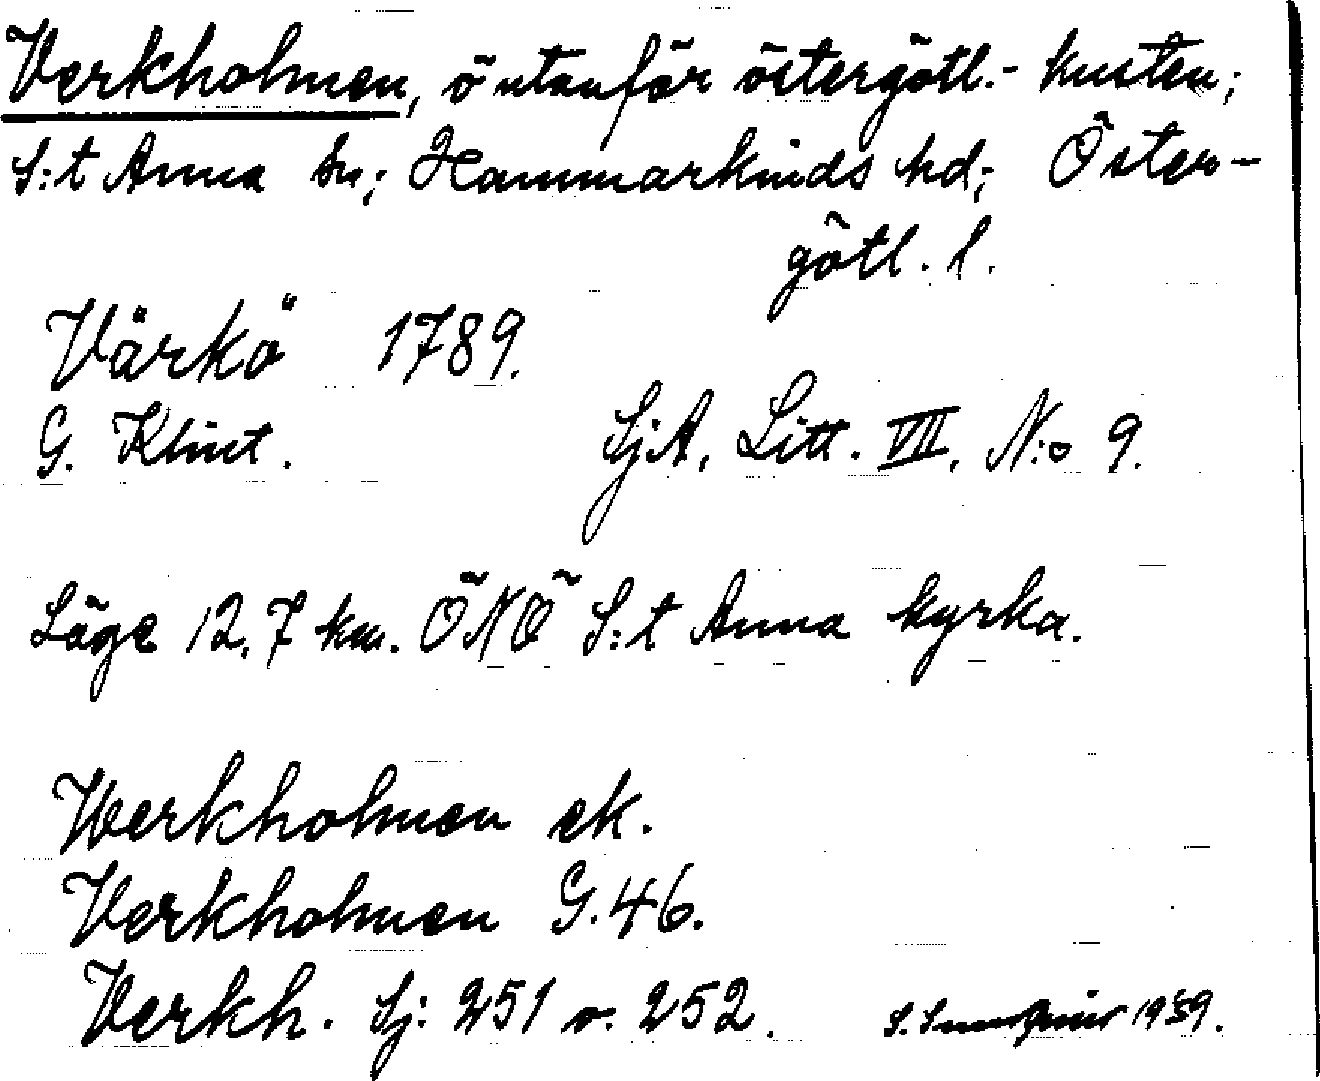 Verkholmen, ö utanför östergötl.- kusten;
S:t Anna sn; Hammarkinds hd; Öster-
götl. l.
Värkö 1789.
G. Klint. SjA, Litt. VII, N:o 9.
Läge 12,7 km. ÖNÖ S:t Anna kyrka.
Werkholmen ek.
Verkholmen G.46.
Verkh. Sj: 251 o. 252. S. 1939.